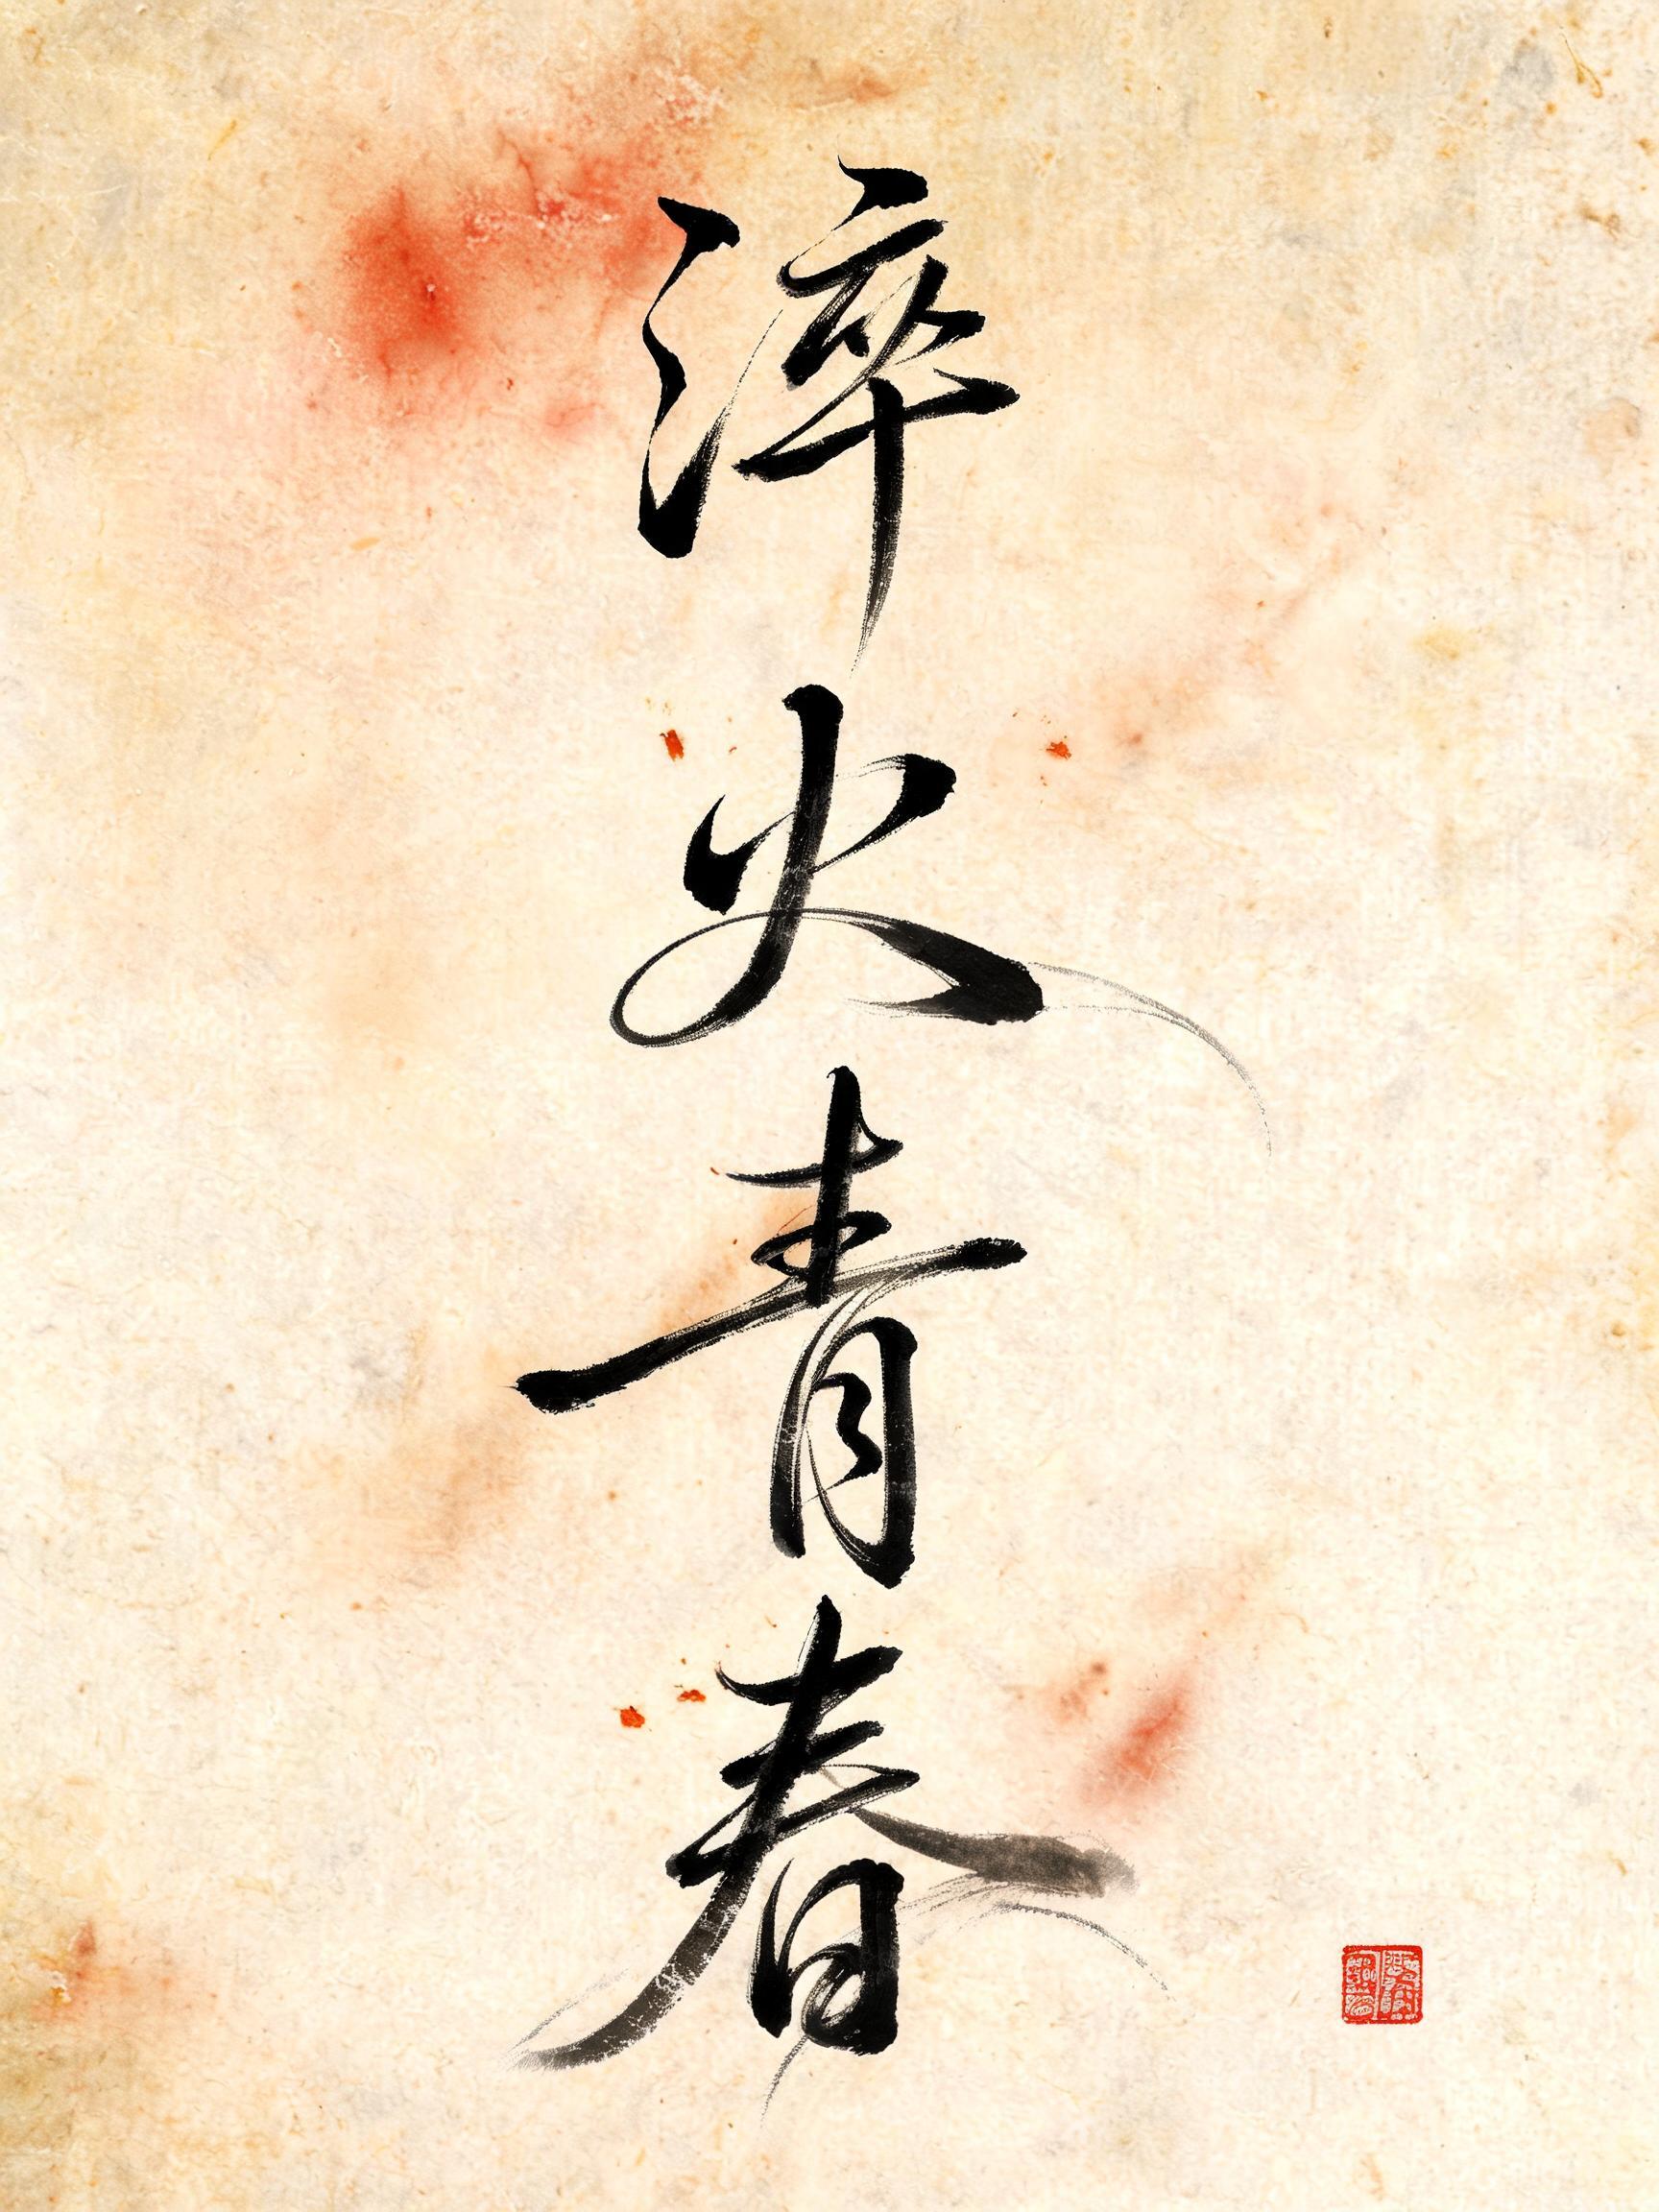 淬火青春